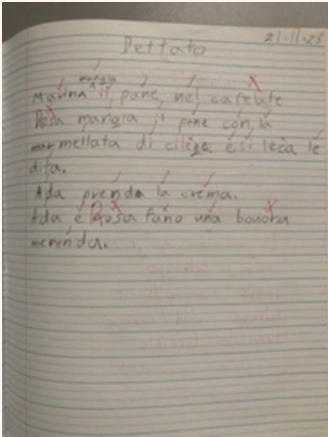 21.11.23
Dettato
mangia
Marina il pane, nel cafelate
Rosa mangia il pane con la
marmellata di cilege e si leca le
dita.
Ada prende la crema.
Ada e Rosa fano una bouona
merenda.